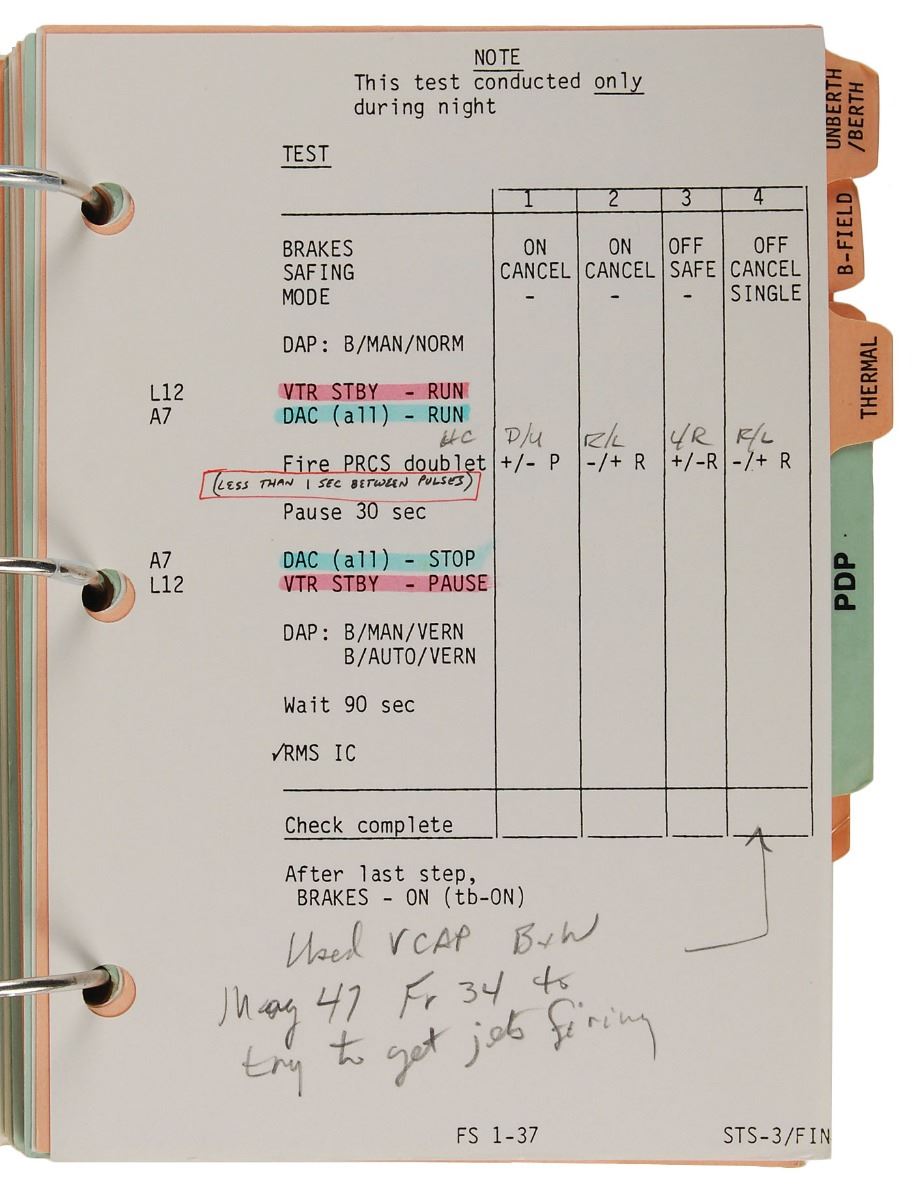 NOTE
This test conducted only
during night
TEST
1 2 3 4
BRAKES ON ON OFF OFF
SAFING CANCEL CANCEL SAFE CANCEL
MODE - - - SINGLE
DAP: B/MAN/NORM
L12 VTR STBY - RUN
A7 DAC (all) - RUN
HC D/U R/L L/R R/L
Fire PRCS doublet +/- P -/+ R +/-R -/+ R
(LESS THAN 1 SEC BETWEEN PULSES)
Pause 30 sec
A7 DAC (all) - STOP
L12 VTR STBY - PAUSE
DAP: B/MAN/VERN
B/AUTO/VERN
Wait 90 sec
✓RMS IC
Check complete
After last step,
BRAKES - ON (tb-ON)
Used VCAP B+W
Mag 47 Fr 34 to
try to get jets firing
FS 1-37 STS-3/FIN
UNBERTH
/BERTH
B-FIELD
THERMAL
PDP